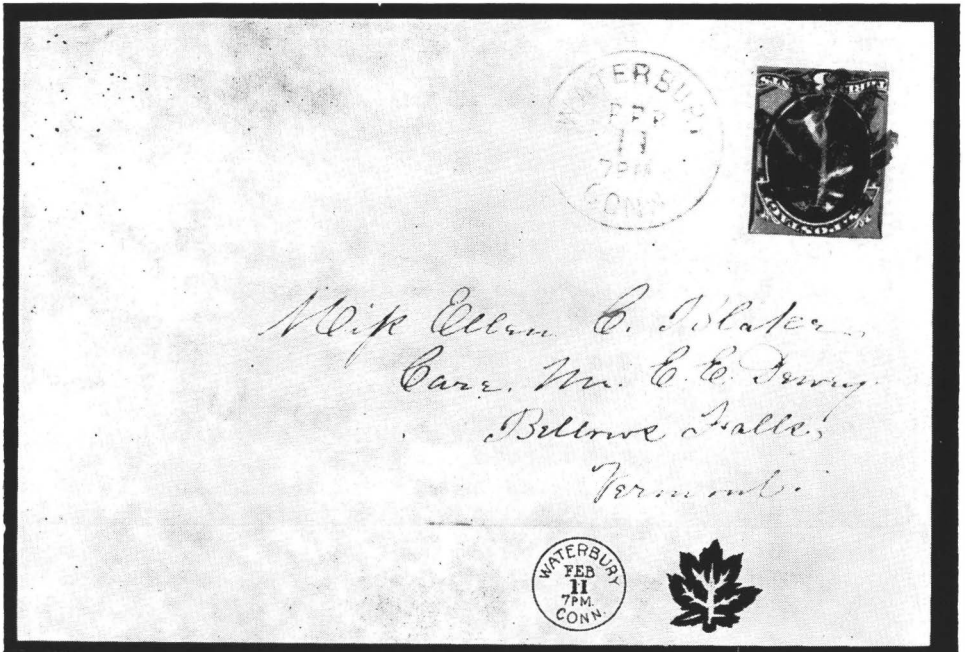 WATERBURY
FEB
11
7PM
CONN.
Miss Ellen C. Blake
Care. Mr. E. E. Dewey
Bellows Falls,
Vermont.
WATERBURY
FEB
11
7PM.
CONN.